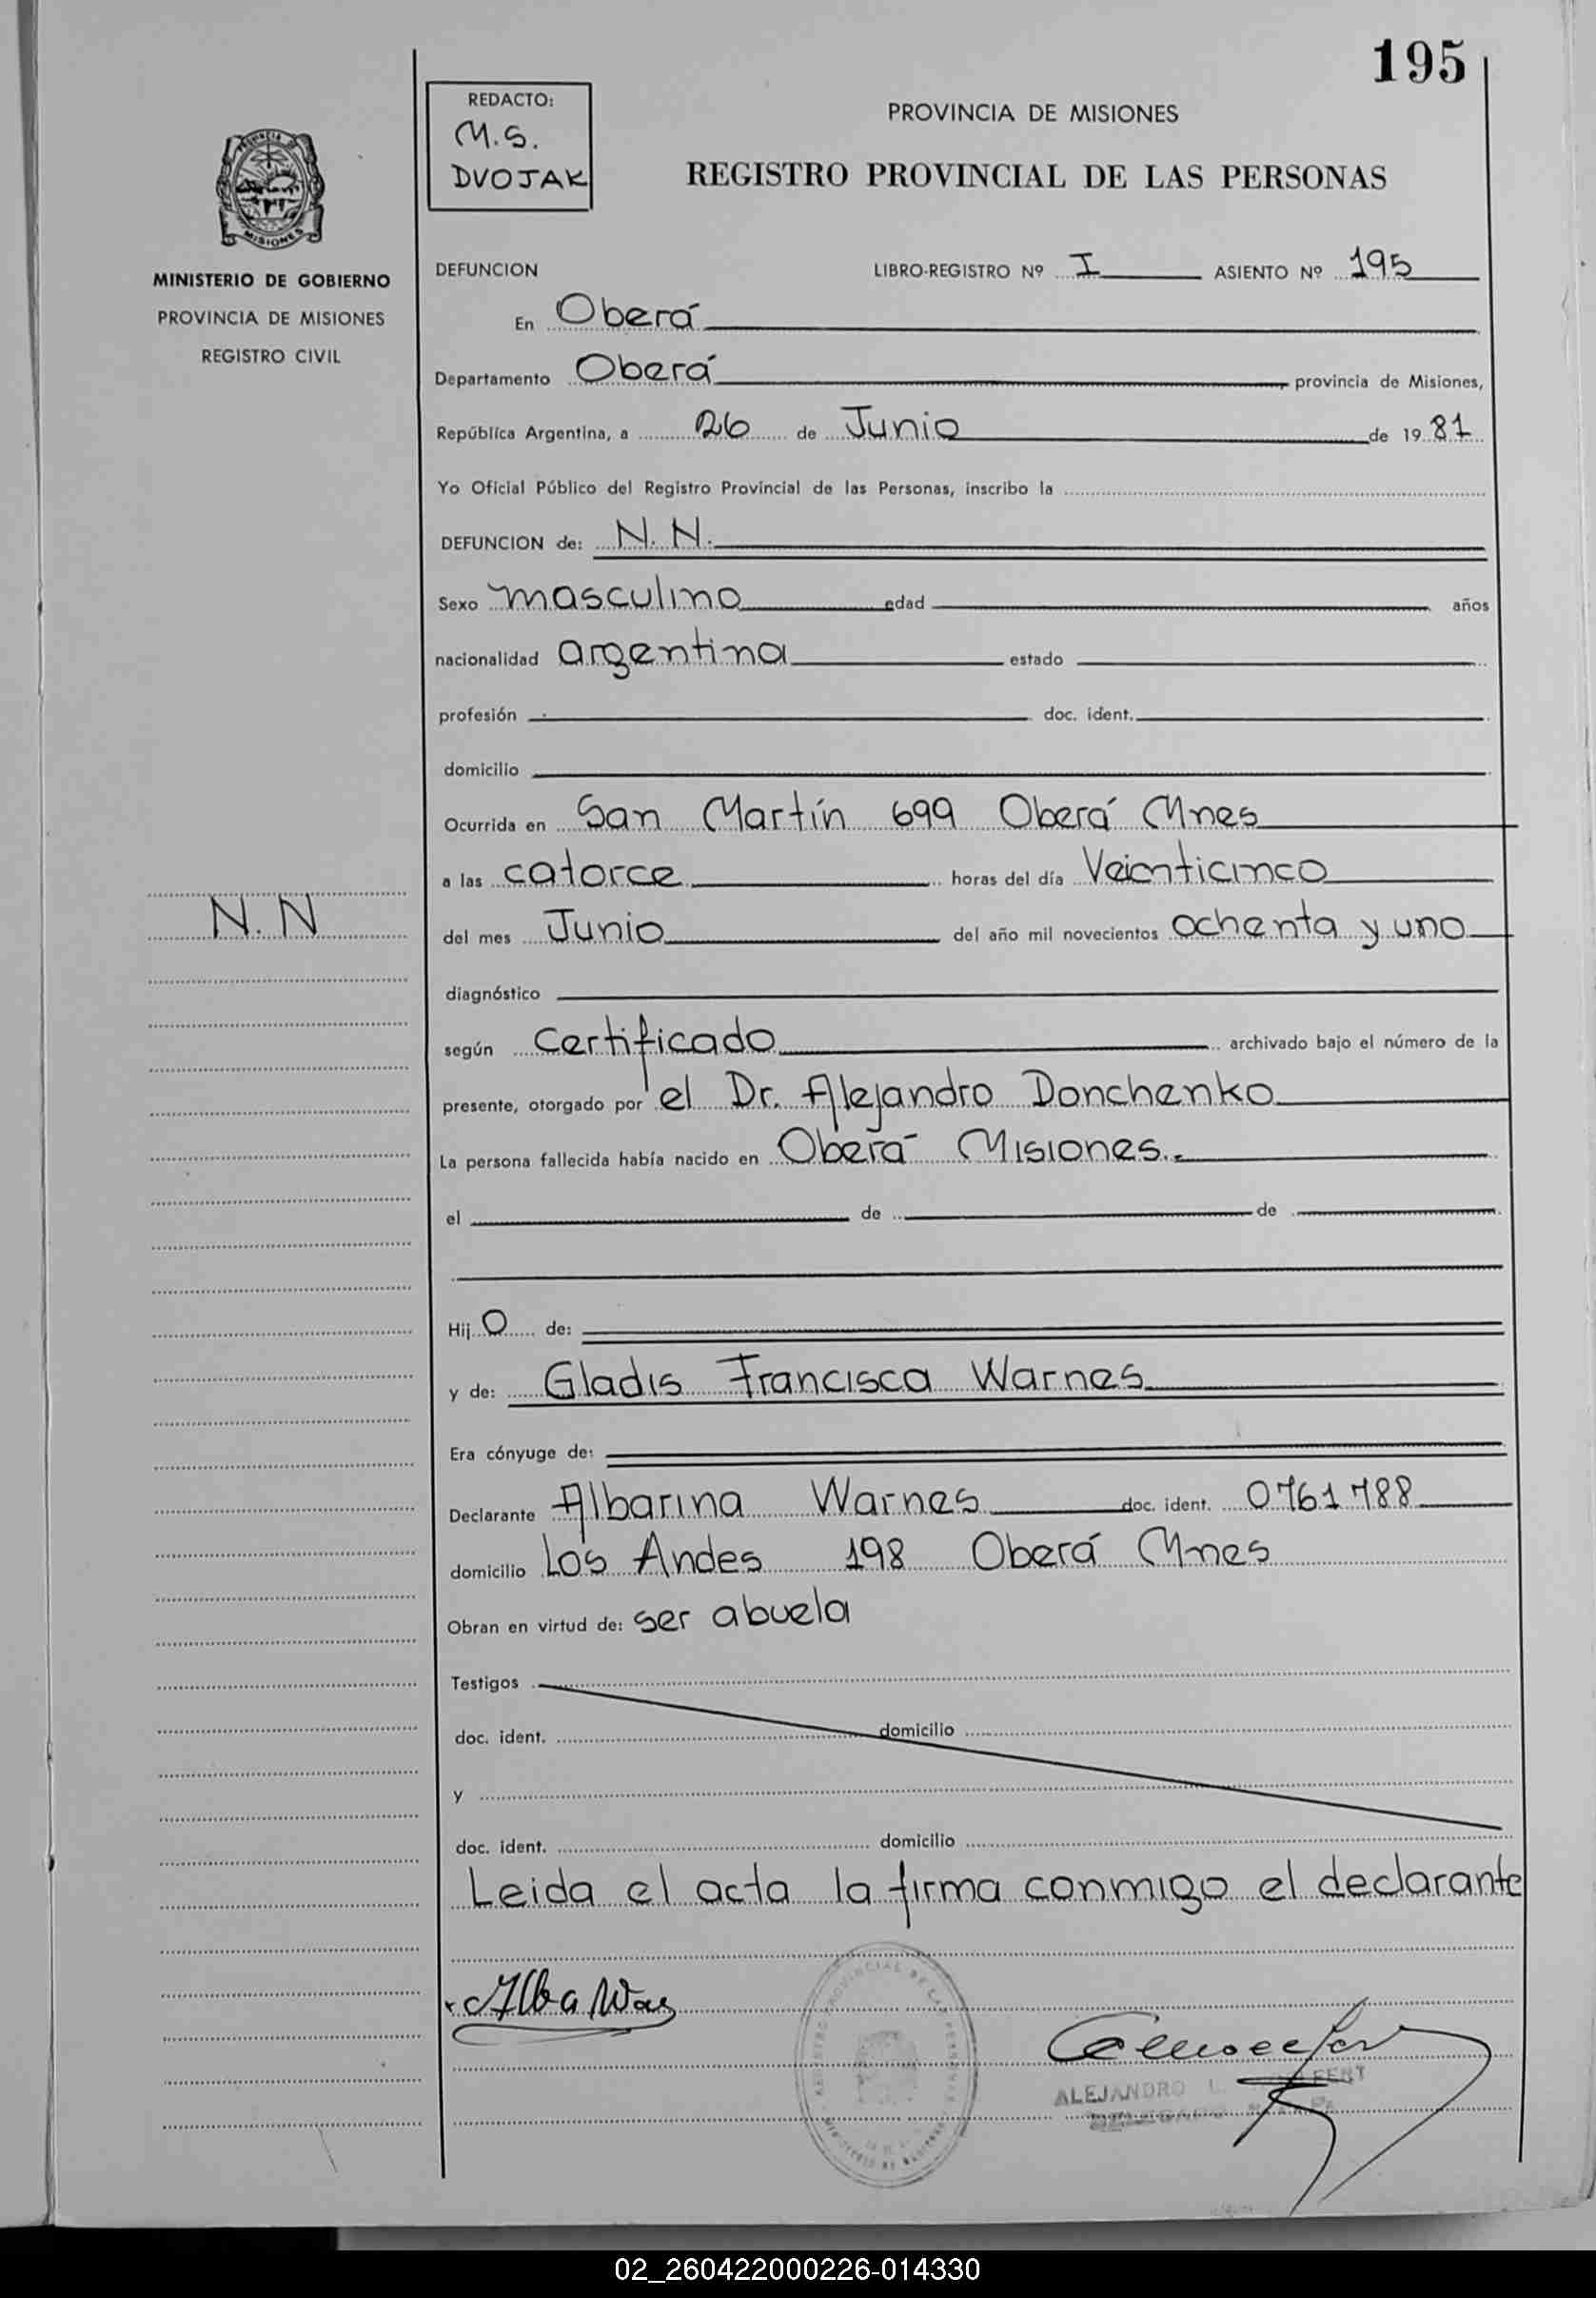 195
REDACTO:
M.S.
DVOJAK
PROVINCIA DE MISIONES
REGISTRO PROVINCIAL DE LAS PERSONAS
MISIONES
MINISTERIO DE GOBIERNO
PROVINCIA DE MISIONES
REGISTRO CIVIL
DEFUNCION LIBRO-REGISTRO Nº I ASIENTO Nº 195
En Oberá
Departamento Oberá provincia de Misiones,
República Argentina, a 26 de Junio de 1981
Yo Oficial Público del Registro Provincial de las Personas, inscribo la
DEFUNCION de: N. N.
Sexo masculino edad años
nacionalidad argentina estado
profesión doc. ident.
domicilio
Ocurrida en San Martín 699 Oberá Mnes
a las catorce horas del día Veinticinco
N. N
del mes Junio del año mil novecientos ochenta y uno
diagnóstico
según certificado archivado bajo el número de la
presente, otorgado por el Dr. Alejandro Donchenko
La persona fallecida había nacido en Oberá Misiones.-
el de de
Hijo de:
y de: Gladis Francisca Warnes
Era cónyuge de:
Declarante Albarina Warnes doc. ident. 0761788
domicilio Los Andes 198 Oberá Mnes
Obran en virtud de: ser abuela
Testigos
doc. ident. domicilio
y
doc. ident. domicilio
Leida el acta la firma conmigo el declarante
Alba
ALEJANDRO L.
DELEGADO
02_260422000226-014330